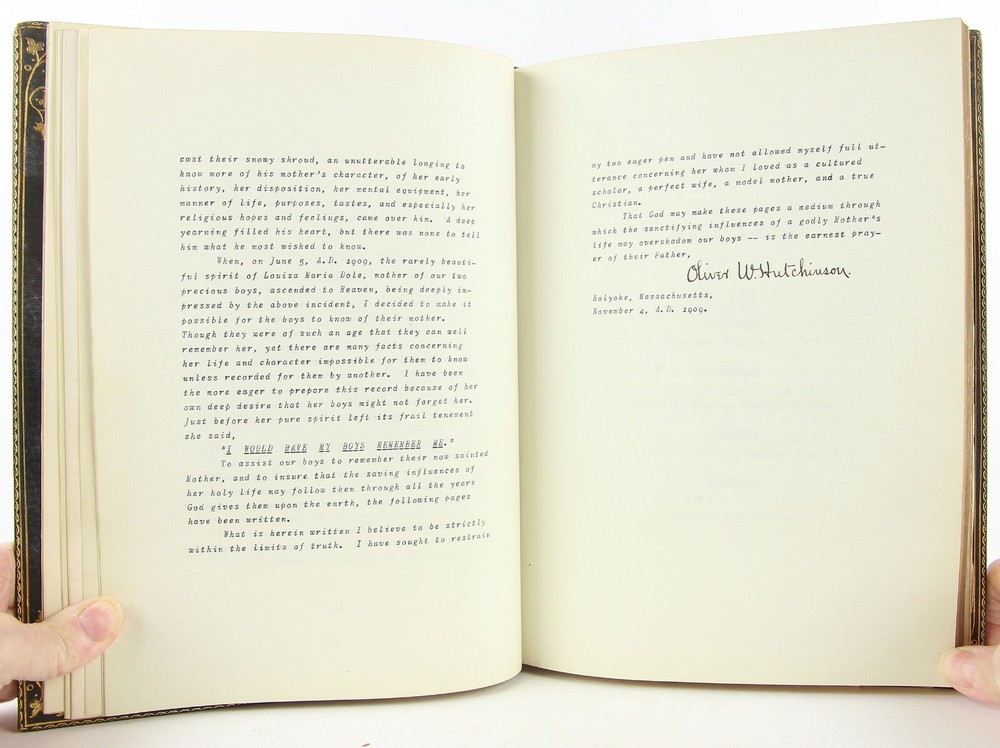 cast their snowy shroud, an unutterable longing to
know more of his mother's character, of her early
history, her disposition, her mental equipment, her
manner of life, purposes, tastes, and especially her
religious hopes and feelings, came over him. A deep
yearning filled his heart, but there was none to tell
him what he most wished to know.
When, on June 5, A.D. 1909, the rarely beauti-
ful spirit of Louisa Maria Dole, mother of our two
precious boys, ascended to Heaven, being deeply im-
pressed by the above incident, I decided to make it
possible for the boys to know of their mother.
Though they were of such an age that they can well
remember her, yet there are many facts concerning
her life and character impossible for them to know
unless recorded for them by another. I have been
the more eager to prepare this record because of her
own deep desire that her boys might not forget her.
Just before her pure spirit left its frail tenement
she said,
"I WOULD HAVE MY BOYS REMEMBER ME."
To assist our boys to remember their now sainted
Mother, and to insure that the saving influences of
her holy life may follow them through all the years
God gives them upon the earth, the following pages
have been written.
What is herein written I believe to be strictly
within the limits of truth. I have sought to restrain
my too eager pen and have not allowed myself full ut-
terance concerning her whom I loved as a cultured
scholar, a perfect wife, a model mother, and a true
Christian.
That God may make these pages a medium through
which the sanctifying influences of a godly Mother's
life may overshadow our boys -- is the earnest pray-
er of their Father,
Oliver W. Hutchinson.
Holyoke, Massachusetts,
November 4, A.D. 1909.